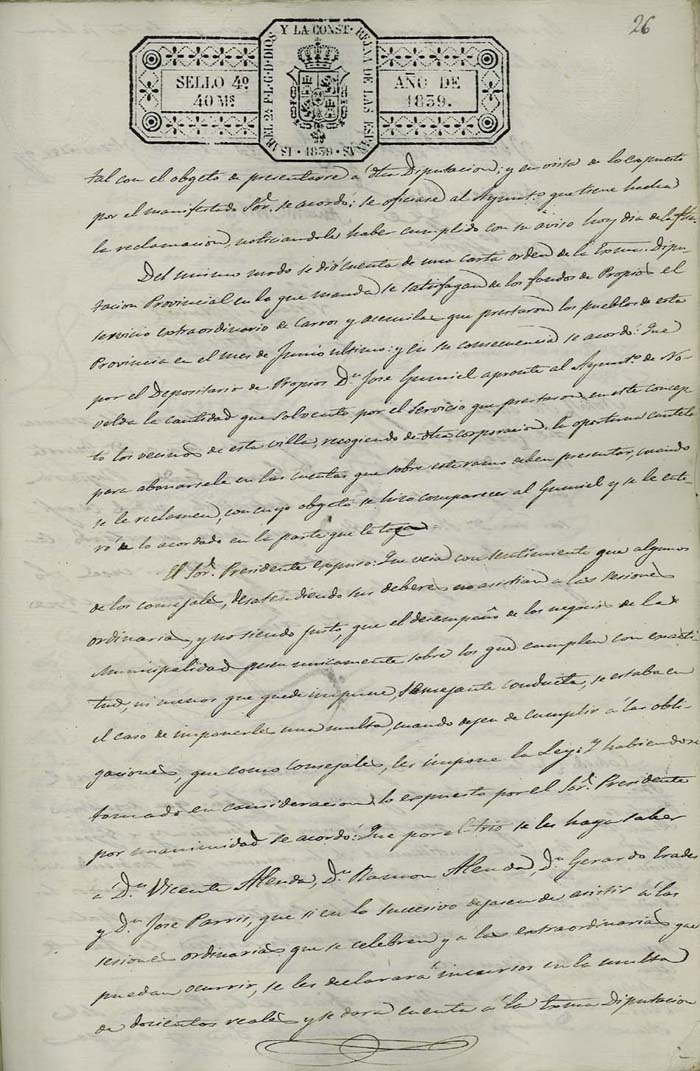 26
Y LA CONST. REYNA DE LAS ESPAÑAS
ISABEL 2ª P. L. G. D. DIOS
SELLO 4º
40 Mˢ
AÑO DE
1839.
1839
tal con el obgeto de presentarse a dha Diputacion; y en vista de lo expuesto
por el manifestado Sor. se acordó; se oficiase al Ayuntº. que tiene hecha
la reclamacion, noticiandole haber cumplido con su aviso hoy dia de la fha.
Del mismo modo se dió cuenta de una carta orden de la Exma. Dipu-
tacion Provincial en la que manda se satisfagan de los fondos de Propios el
servicio extraordinario de Carros y acemilas que prestaron los pueblos de esta
Provincia en el mes de Junio ultimo: y en su consecuencia se acordó: Que
por el Depositario de Propios Dn. Jose Gumiel apronte al Ayuntº. de No-
velda la cantidad que solvento por el servicio que prestaron en este concep-
to los vecinos de esta villa, recogiendo de dha corporacion la oportuna cautela
para abonarsele en las cuentas que sobre este ramo deben presentar, cuando
se le reclamen, con cuyo obgeto se hizo comparecer al Gumiel y se le ente-
ró de lo acordado en la parte que le toca
El Sor. Presidente expuso: Que veia con sentimiento que algunos
de los consejales, desatendiendo sus deberes no asistian a las sesiones
ordinarias, y no siendo justo, que el desempeño de los negocios de la
Municipalidad pesen unicamente sobre los que cumplen con exacti-
tud, ni menos que quede impune, semejante conducta, se estaba en
el caso de imponerles una multa, cuando dejen de cumplir á las obli-
gaciones, que como Consejales, les impone la Ley: Y habiendose
tomado en consideracion lo expuesto por el Sor. Presidente
por unanimidad se acordó: Que por el Srio se les haga saber
a Dn. Vicente Alenda, Dn. Ramon Alenda, Dn. Gerardo Erades
y Dn. Jose Parris, que si en lo sucesivo dejasen de asistir a las
sesiones ordinarias que se celebren y a las extraordinarias que
puedan ocurrir, se les declarará incursos en la multa
de docientos reales y se dara cuenta á la Exma Diputacion